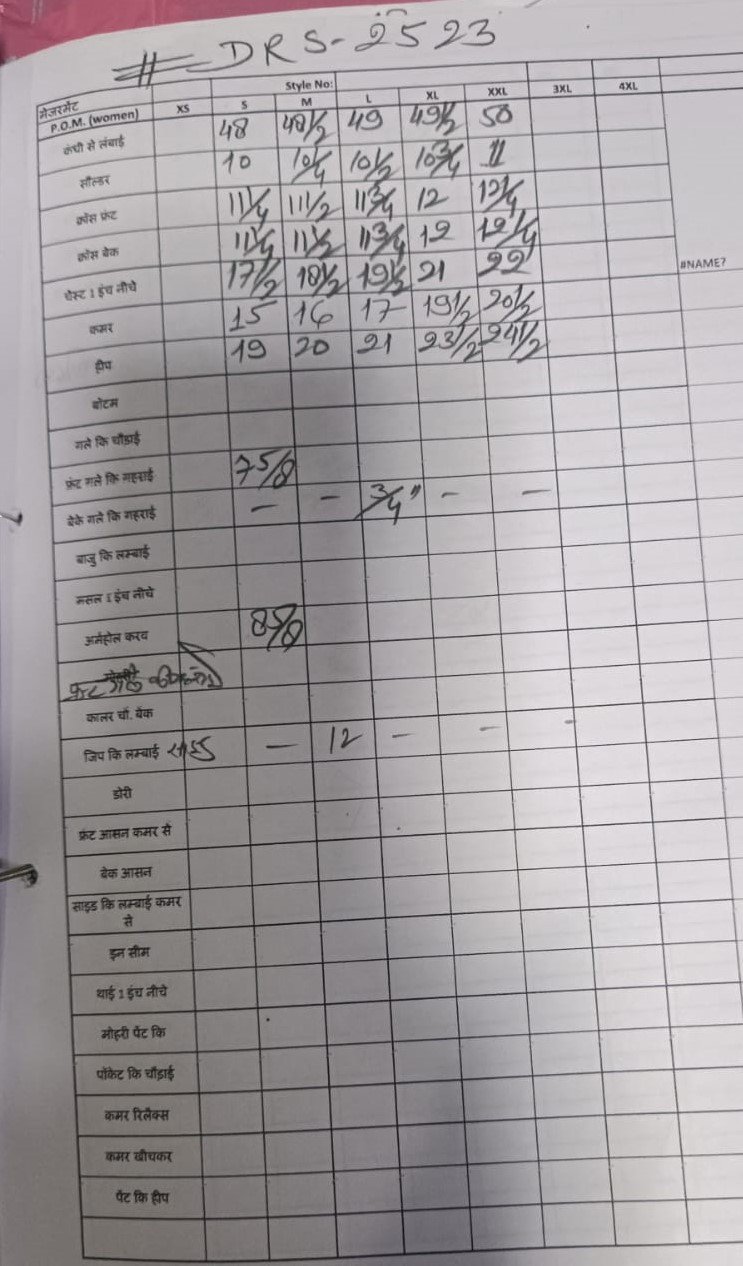 # DRS-2523
Style No:
मेजरमेंट
P.O.M. (women) XS S M L XL XXL 3XL 4XL
कंधी से लंबाई 48 48 1/2 49 49 1/2 50
सोल्डर 10 10 1/4 10 1/2 10 3/4 11
क्रॉस फ्रंट 11 1/4 11 1/2 11 3/4 12 12 1/4
क्रॉस बेक 11 1/4 11 1/2 11 3/4 12 12 1/4
चेस्ट 1 इंच नीचे 17 1/2 18 1/2 19 1/2 21 22 #NAME?
कमर 15 16 17 19 1/2 20 1/2
हीप 19 20 21 23 1/2 24 1/2
बोटम
गले कि चौड़ाई
फ्रंट गले कि गहराई 7 5/8
बेके गले कि गहराई — — 3/4" — —
बाजु कि लम्बाई
मसल 1 इंच नीचे
अर्महोल करव 8 5/8
फ्रंट
कालर चौ. बेक
जिप कि लम्बाई साइड — 12 — — -
डोरी
फ्रंट आसन कमर से
बेक आसन
साइड कि लम्बाई कमर
से
इन सीम
थाई 1 इंच नीचे
मोहरी पेंट कि
पॉकेट कि चौड़ाई
कमर रिलैक्स
कमर खीचकर
पेंट कि हीप